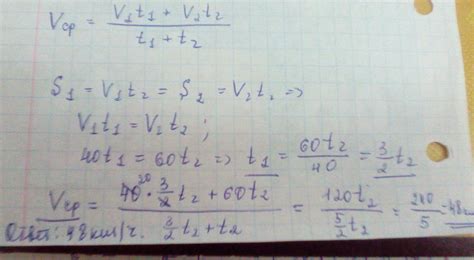 Vср = (V₁t₁ + V₂t₂) / (t₁ + t₂)
S₁ = V₁t₂ = S₂ = V₂t₂ =>
V₁t₁ = V₂t₂ ;
40t₁ = 60t₂ => t₁ = 60t₂ / 40 = 3/2 t₂
Vср = (40 20 · 3/2 t₂ + 60t₂) / (3/2 t₂ + t₂) = 120t₂ / (5/2 t₂) = 240 / 5 = 48
Ответ: 48 км/ч.